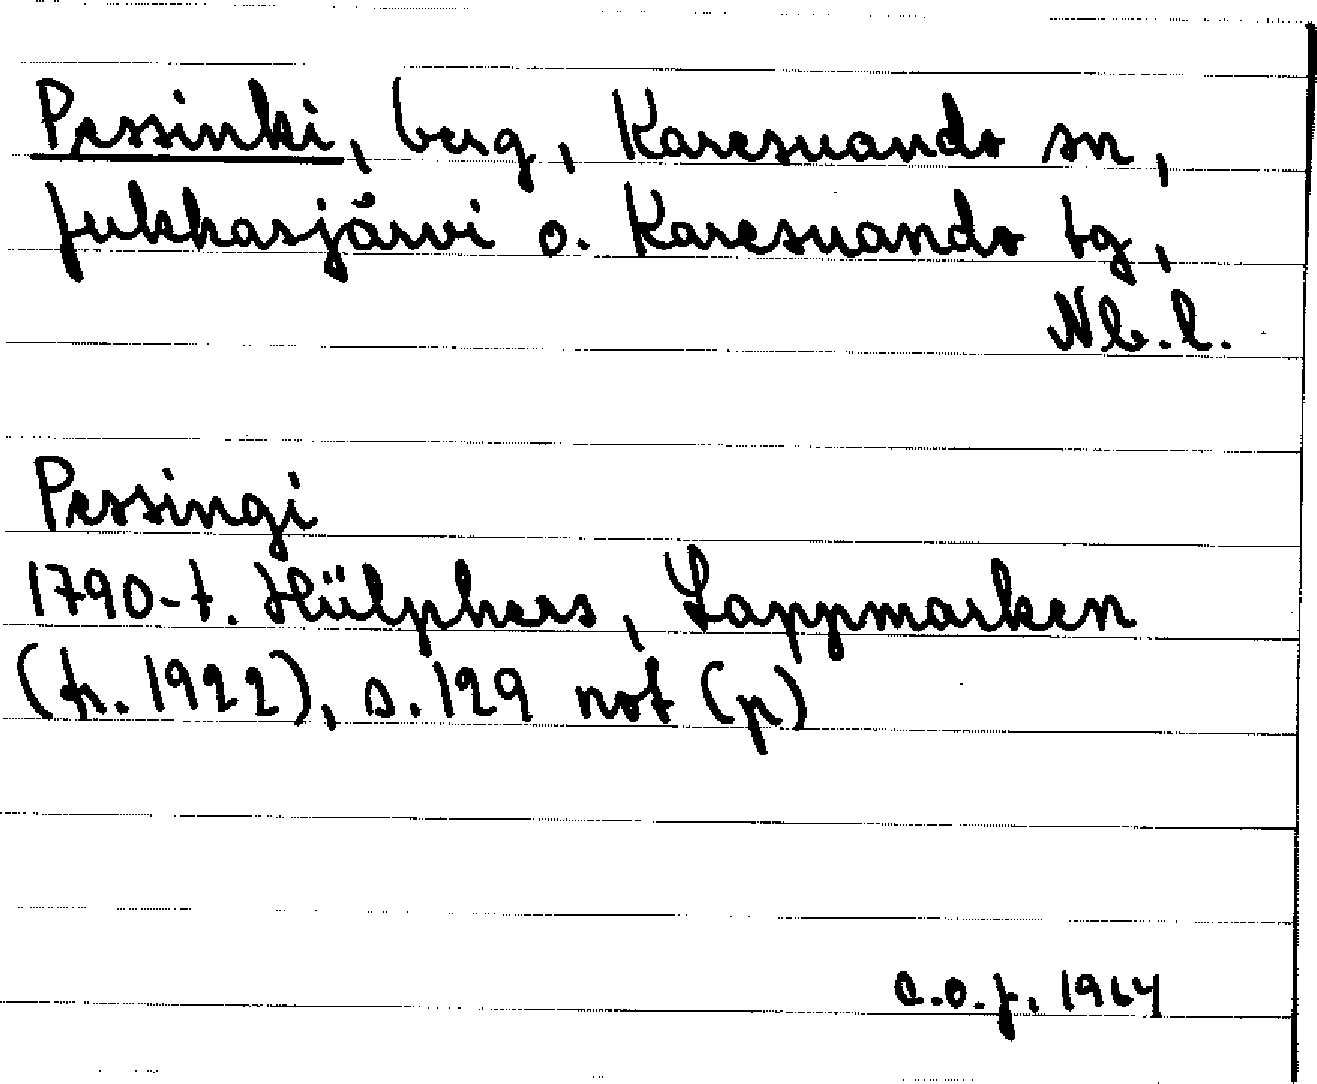 Pessinki, berg, Karesuando sn,
Jukkasjärvi o. Karesuando tg,
Nb.l.
Pessingi
1790-t. Hülphers, Lappmarken
(tr. 1922), s. 129 not (p)
C.O.J. 1964